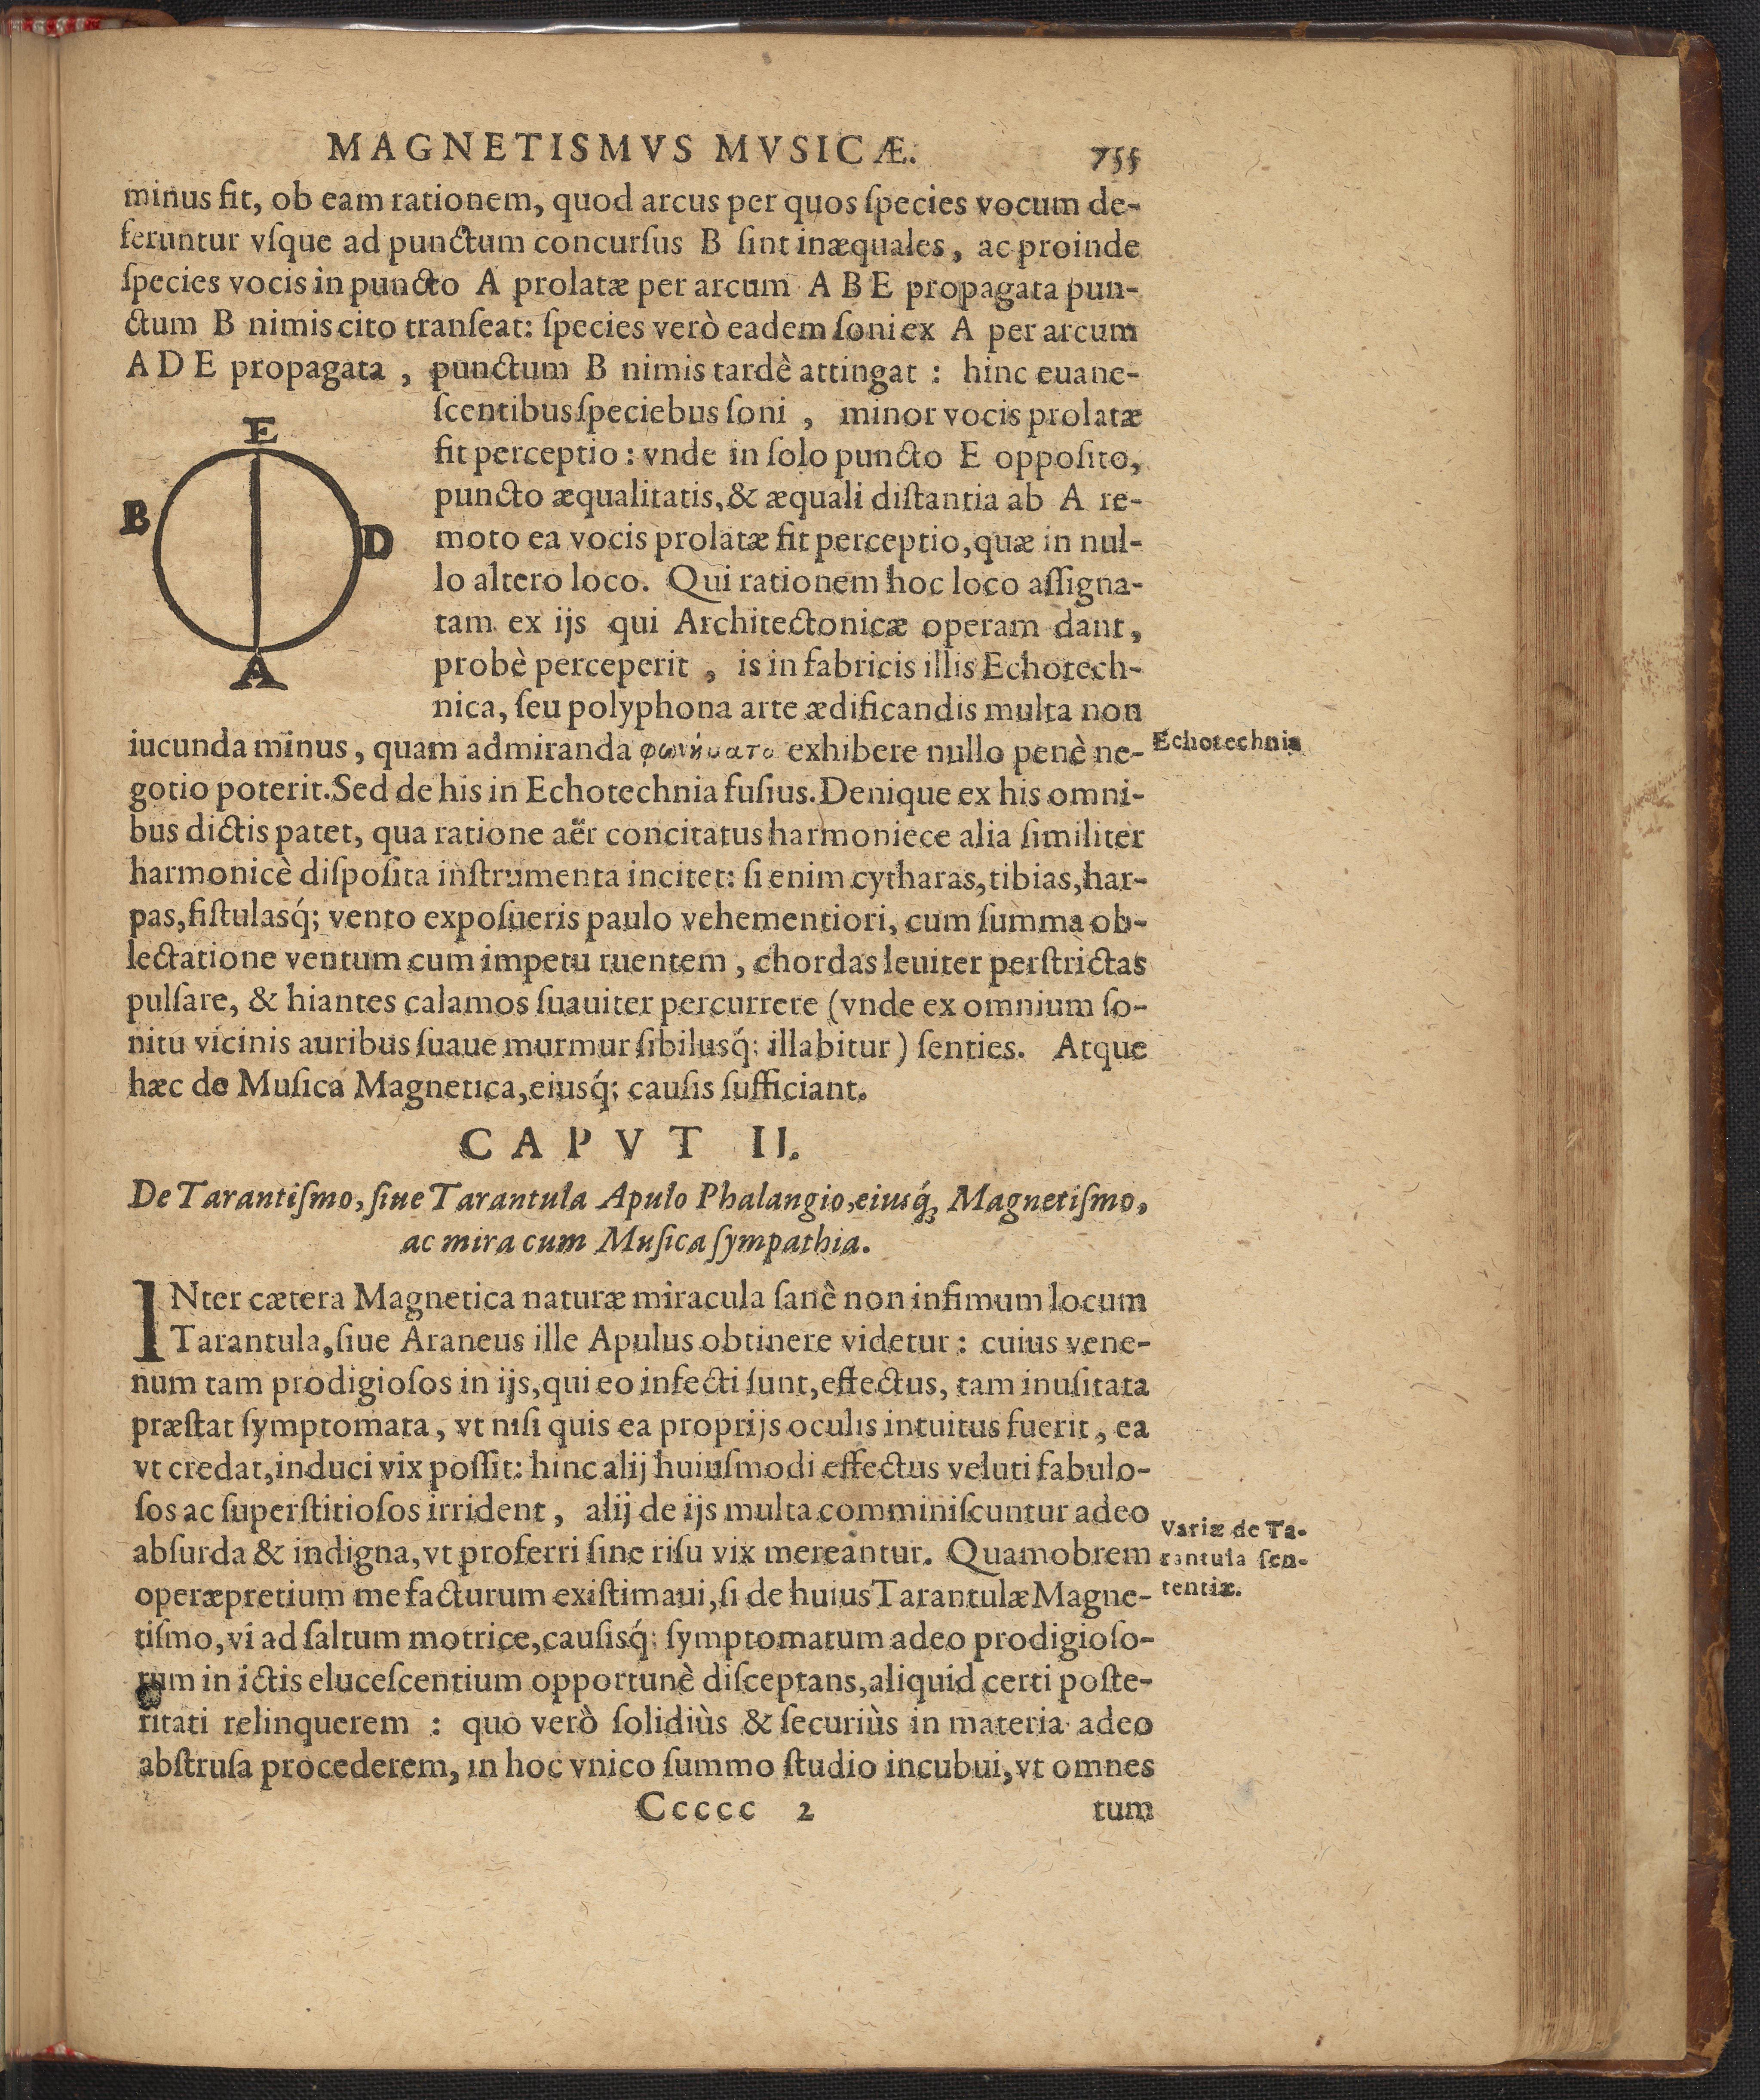 MAGNETISMVS MVSICÆ. 755
minus fit, ob eam rationem, quod arcus per quos ſpecies vocum de-
feruntur vſque ad punctum concurſus B ſint inæquales, ac proinde
ſpecies vocis in puncto A prolatæ per arcum A B E propagata pun-
ctum B nimis cito tranſeat: ſpecies verò eadem ſoni ex A per arcum
A D E propagata, punctum B nimis tardè attingat : hinc euane-
ſcentibus ſpeciebus ſoni, minor vocis prolatæ
fit perceptio: vnde in ſolo puncto E oppoſito,
puncto æqualitatis, & æquali diſtantia ab A re-
moto ea vocis prolatæ fit perceptio, quæ in nul-
lo altero loco. Qui rationem hoc loco aſſigna-
tam ex ijs qui Architectonicæ operam dant,
probè perceperit, is in fabricis illis Echotech-
nica, ſeu polyphona arte ædificandis multa non
E
B
D
A
iucunda minus, quam admiranda exhibere nullo penè ne-
Echotechnia
gotio poterit. Sed de his in Echotechnia fuſius. Denique ex his omni-
bus dictis patet, qua ratione aër concitatus harmoniece alia ſimiliter
harmonicè diſpoſita inſtrumenta incitet: ſi enim cytharas, tibias, har-
pas, fiſtulasq́; vento expoſueris paulo vehementiori, cum ſumma ob-
lectatione ventum cum impetu ruentem, chordas leuiter perſtrictas
pulſare, & hiantes calamos ſuauiter percurrere (vnde ex omnium ſo-
nitu vicinis auribus ſuaue murmur ſibilusq́; illabitur) ſenties. Atque
hæc de Muſica Magnetica, eiusq́; cauſis ſufficiant.
CAPVT II.
De Tarantiſmo, ſiue Tarantula Apulo Phalangio, eiusq́; Magnetiſmo,
ac mira cum Muſica ſympathia.
INter cætera Magnetica naturæ miracula ſanè non infimum locum
Tarantula, ſiue Araneus ille Apulus obtinere videtur: cuius vene-
num tam prodigioſos in ijs, qui eo infecti ſunt, effectus, tam inuſitata
præſtat ſymptomata, vt niſi quis ea proprijs oculis intuitus fuerit, ea
vt credat, induci vix poſſit: hinc alij huiuſmodi effectus veluti fabulo-
ſos ac ſuperſtitioſos irrident, alij de ijs multa comminiſcuntur adeo
abſurda & indigna, vt proferri ſine riſu vix mereantur. Quamobrem
operæpretium me facturum exiſtimaui, ſi de huius Tarantulæ Magne-
Variæ de Ta-
rantula ſen-
tentiæ.
tiſmo, vi ad ſaltum motrice, cauſisq́; ſymptomatum adeo prodigioſo-
rum in ictis eluceſcentium opportunè diſceptans, aliquid certi poſte-
ritati relinquerem : quo verò ſolidiùs & ſecuriùs in materia adeo
abſtruſa procederem, in hoc vnico ſummo ſtudio incubui, vt omnes
Ccccc 2 tum